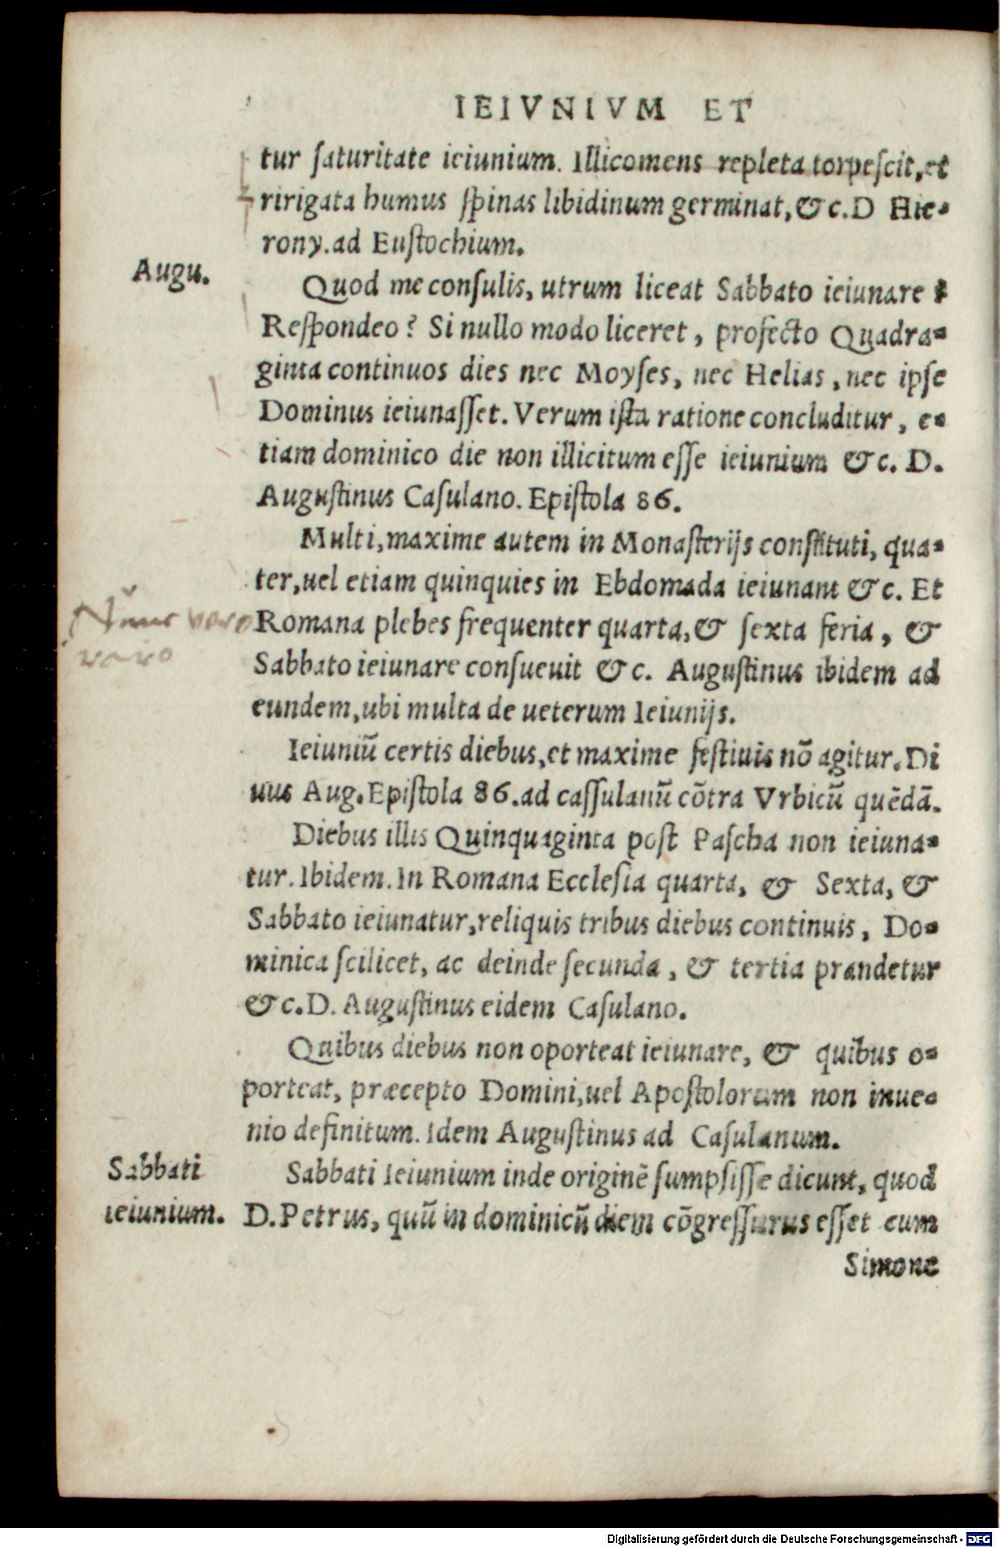 IEIVNIVM ET
tur saturitate ieiunium. Illico mens repleta torpescit, et
ririgata humus spinas libidinum germinat, & c. D Hie-
rony. ad Eustochium.
Augu.
Quod me consulis, utrum liceat Sabbato ieiunare?
Respondeo? Si nullo modo liceret, profecto Quadra-
ginta continuos dies nec Moyses, nec Helias, nec ipse
Dominus ieiunasset. Verum ista ratione concluditur, e-
tiam dominico die non illicitum esse ieiunium & c. D.
Augustinus Casulano. Epistola 86.
Multi, maxime autem in Monasterijs constituti, qua-
ter, uel etiam quinquies in Ebdomada ieiunant & c. Et
Nunc vero
raro
Romana plebes frequenter quarta, & sexta feria, &
Sabbato ieiunare consueuit & c. Augustinus ibidem ad
eundem, ubi multa de ueterum Ieiunijs.
Ieiuniũ certis diebus, et maxime festiuis nõ agitur. Di
uus Aug. Epistola 86. ad cassulanũ cõtra Vrbicũ quẽdã.
Diebus illis Quinquaginta post Pascha non ieiuna-
tur. Ibidem. In Romana Ecclesia quarta, & Sexta, &
Sabbato ieiunatur, reliquis tribus diebus continuis, Do-
minica scilicet, ac deinde secunda, & tertia prandetur
& c. D. Augustinus eidem Casulano.
Quibus diebus non oporteat ieiunare, & quibus o-
porteat, præcepto Domini, uel Apostolorum non inue-
nio definitum. Idem Augustinus ad Casulanum.
Sabbati
ieiunium.
Sabbati Ieiunium inde originẽ sumpsisse dicunt, quod
D. Petrus, quũ in dominicũ diem cõgressurus esset cum
Simone
Digitalisierung gefördert durch die Deutsche Forschungsgemeinschaft - DFG